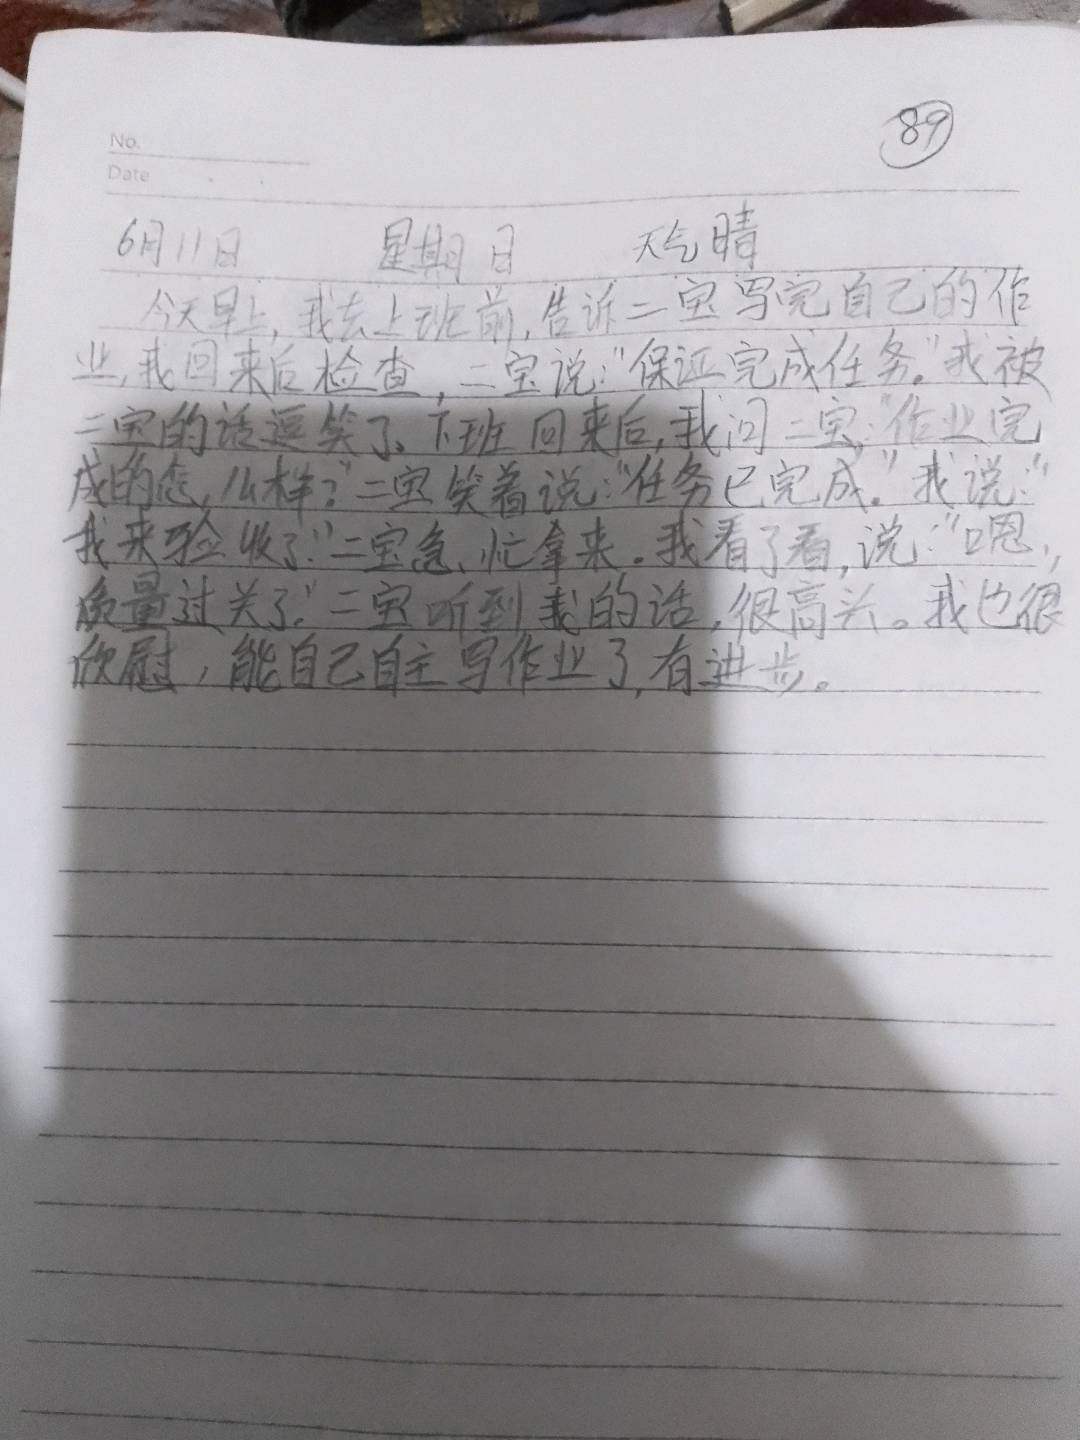 89
No.
Date
6月11日 星期日 天气晴
今天早上,我去上班前,告诉二宝写完自己的作
业,我回来后检查,二宝说:"保证完成任务。"我被
二宝的话逗笑了。下班回来后,我问二宝:"作业完
成的怎么样?"二宝笑着说:"任务已完成。"我说:"
我来验收了."二宝急忙拿来。我看了看,说:"嗯,
质量过关了."二宝听到我的话,很高兴。我也很
欣慰,能自己自主写作业了,有进步。